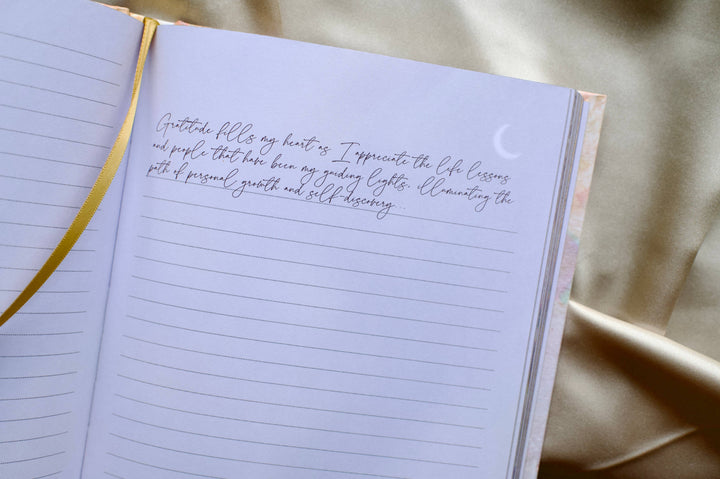 Gratitude fills my heart as I appreciate the life lessons
and people that have been my guiding lights, illuminating the
path of personal growth and self-discovery...